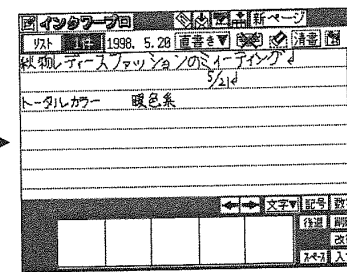 インクワープロ 新ページ
リスト 1件 1998. 5.28 直書き▼ 清書
秋物レディースファッションのミーティング↲
5/21↲
トータルカラー 暖色系
← → 文字▼ 記号 数
後退 削
改
スペース 入